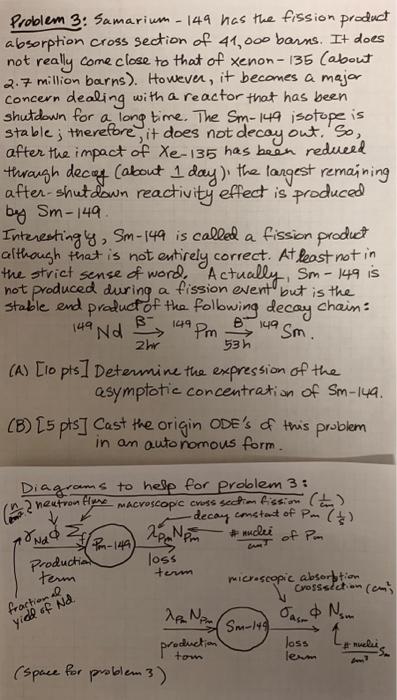 Problem 3: Samarium - 149 has the fission product
absorption cross section of 41,000 barns. It does
not really come close to that of xenon-135 (about
2.7 million barns). However, it becomes a major
concern dealing with a reactor that has been
shutdown for a long time. The Sm-149 isotope is
stable; therefore, it does not decay out. So,
after the impact of Xe-135 has been reduced
through decay (about 1 day), the largest remaining
after-shutdown reactivity effect is produced
by Sm-149.
Interestingly, Sm-149 is called a fission product
although that is not entirely correct. At least not in
the strict sense of word. Actually, Sm-149 is
not produced during a fission event but is the
stable end product of the following decay chain:
¹⁴⁹Nd β⁻→ 2hr ¹⁴⁹Pm β⁻→ 53h ¹⁴⁹Sm.
(A) [10 pts] Determine the expression of the
asymptotic concentration of Sm-149.
(B) [5 pts] Cast the origin ODE's of this problem
in an autonomous form.
Diagrams to help for problem 3:
neutron flux macroscopic cross section fission (1/cm)
decay constant of Pm (1/s)
γNd φ Σf Pm-149 λPm NPm # nuclei/cm³ of Pm
Production term
loss term
fractional yield of Nd.
microscopic absorbtion crosssection (cm²)
λPm NPm Sm-149 σaSm φ NSm
production term
loss term
# nuclei/cm³ Sm
(Space for problem 3)